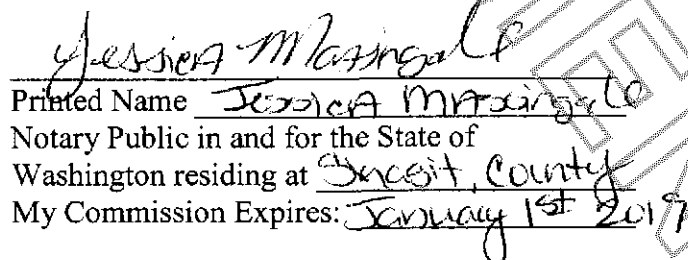 Jessica Masingale
Printed Name Jessica Masingale
Notary Public in and for the State of
Washington residing at Skagit, County
My Commission Expires: January 1st 2019